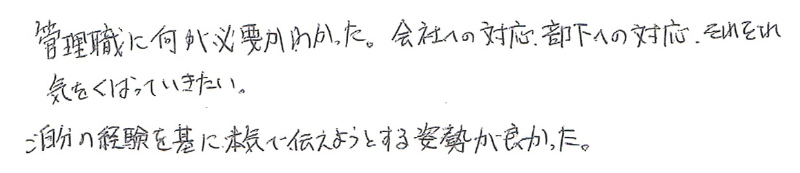 管理職に何が必要かわかった。会社への対応、部下への対応、それぞれ
気をくばっていきたい。
ご自分の経験を基に本気で伝えようとする姿勢が良かった。